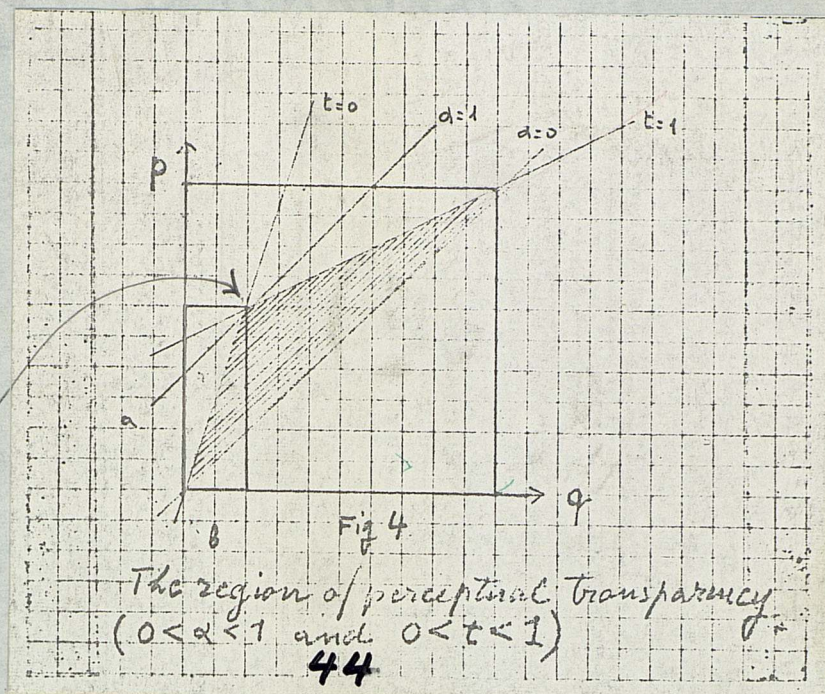 t=0
α=1
α=0
t=1
p
a
q
b
Fig 4
The region of perceptual transparency
(0<α<1 and 0<t<1)
44